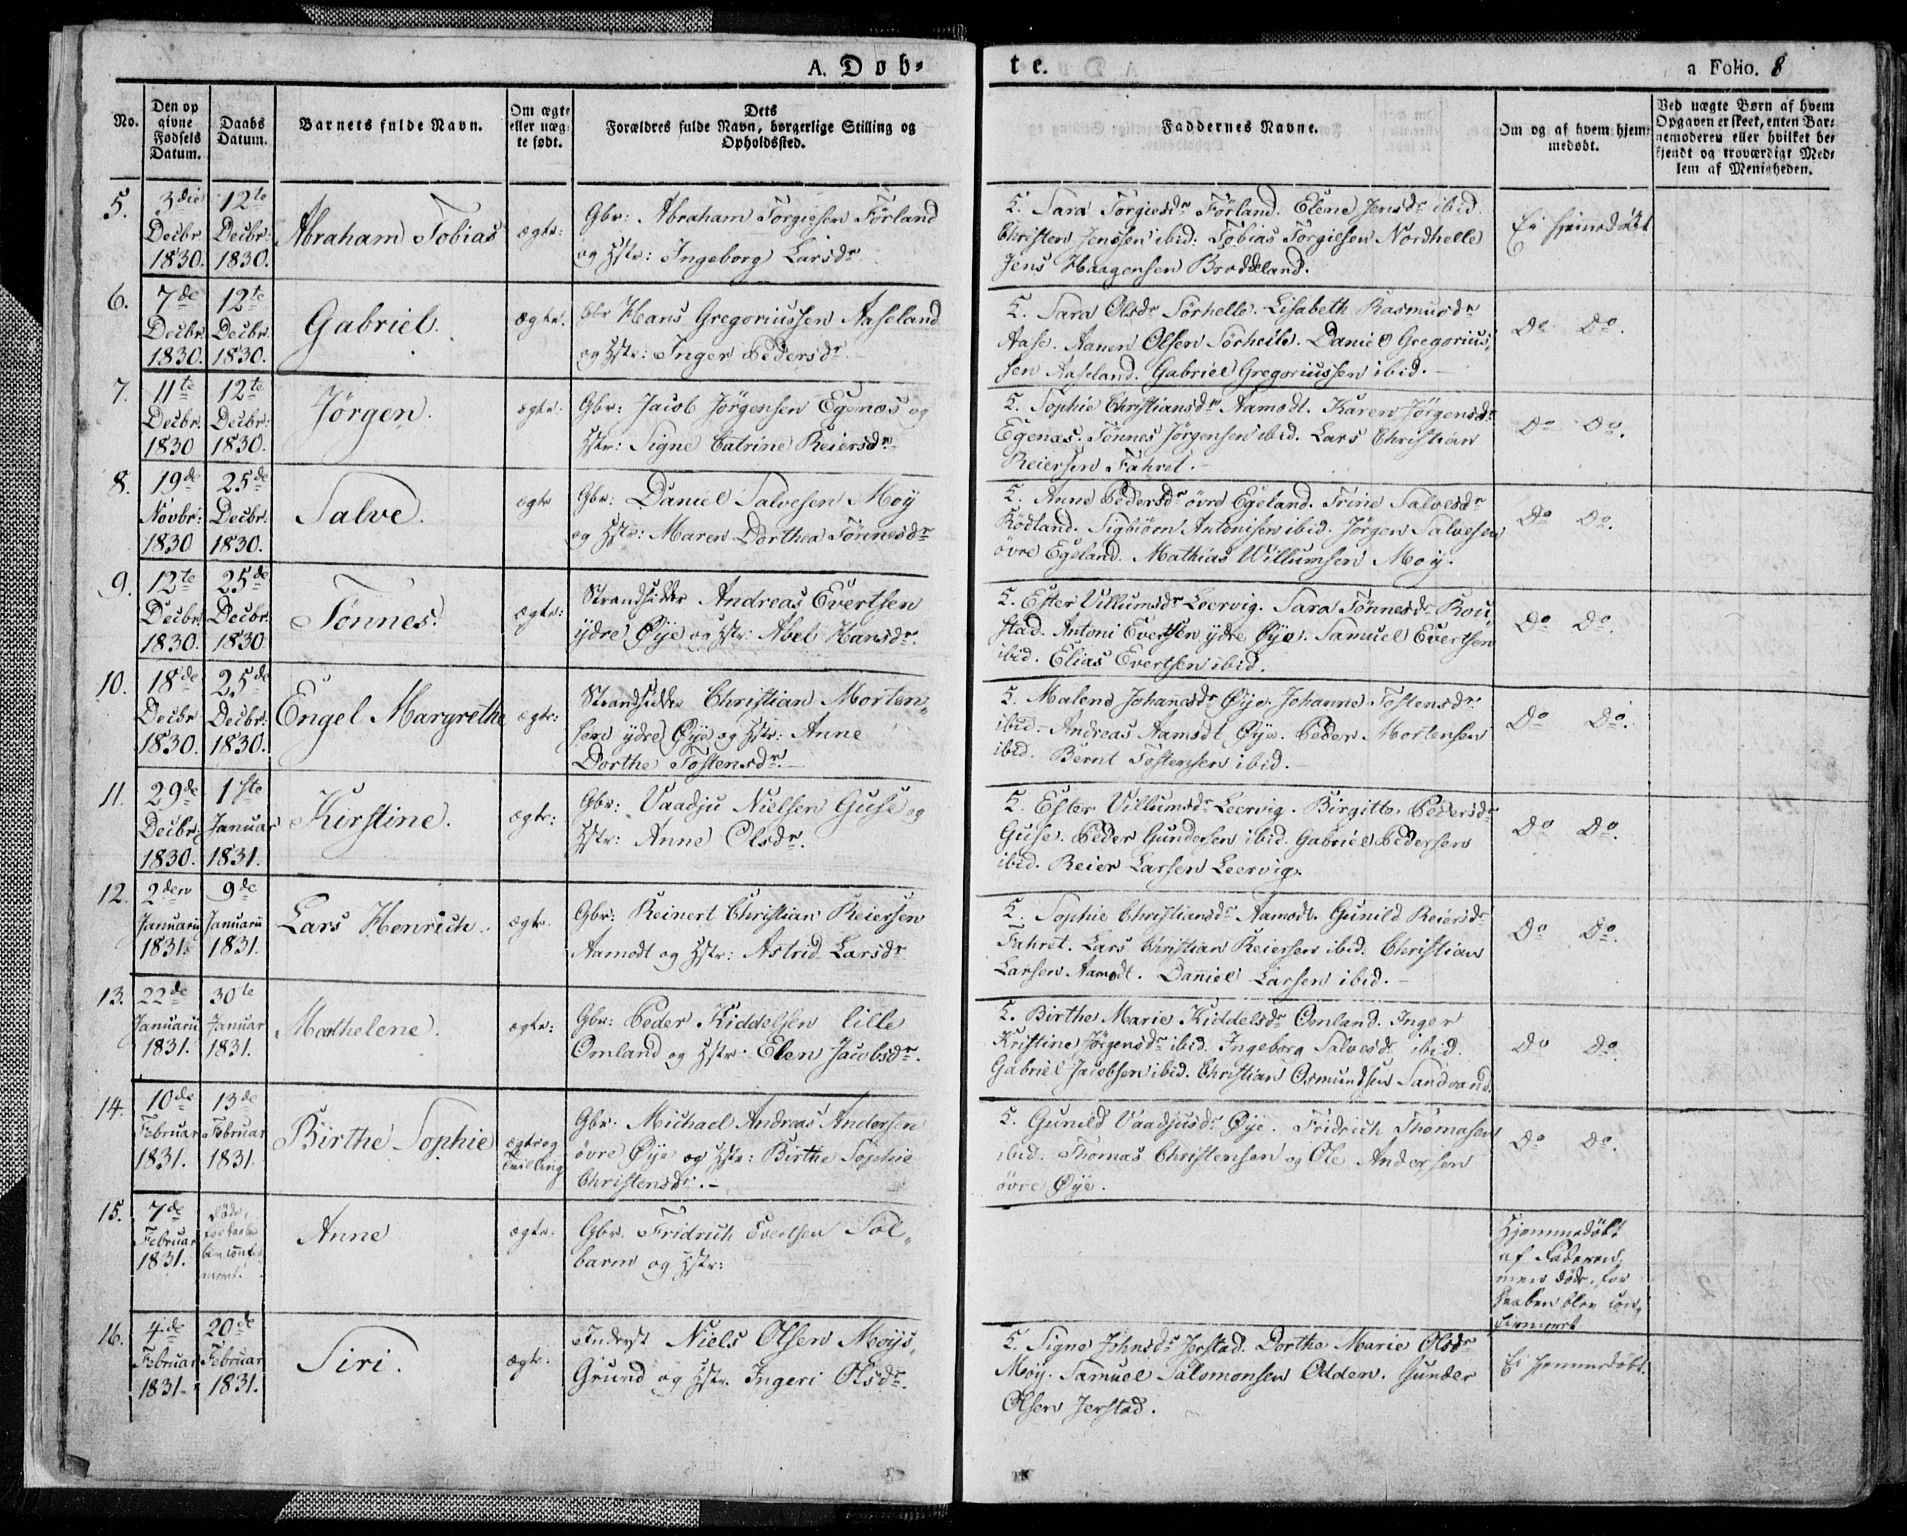 A. Døb-
te.
a Folio. 8
No.
Den op
givne
Fødsels
Datum.
Daabs
Datum.
Barnets fulde Navn.
Om ægte
eller uæg-
te født.
Dets
Forældres fulde Navn, borgerlige Stilling og
Opholdssted.
Faddernes Navne.
Om og af hvem hjem-
medøbt.
Ved uægte Børn af hvem
Opgaven er skeet, enten Bar-
nemoderen eller hvilket be-
kjendt og troværdigt Med-
lem af Menigheden.
5.
3die
Decbr
1830.
12te
Decbr:
1830.
Abraham Tobias
ægte:
Gbr: Abraham Torgiesen Førland
og Hstr: Ingeborg Larsdr
Sara Torgiesdr Førland. Elene Jensdr ibid.
Christen Jenssen ibid: Tobias Torgilsen Nordhelle
Jens Haagensen Broddeland.
Ei hjemedøbt
6.
7de
Decbr.
1830.
12te
Decbr.
1830.
Gabriel.
ægte.
Gbr Hans Gregoriussen Aaseland
og Hstr: Inger Pedersdr
Sara Olsdr Sørhelle. Lisabeth Rasmusdr
Aase. Aanen Olsen Sørhelle. Daniel Gregorius-
sen Aaseland. Gabriel Gregoriussen ibid.
Do Do.
7.
11te
Decbr.
1830
12te
Decbr:
1830.
Jørgen.
ægte.
Gbr: Jacob Jørgensen Egenæs og
Hstr: Signe Catrine Reiersdr
Sophie Christiansdr Aamodt. Karen Jørgensdr
Egenæs. Tønnes Jørgensen ibid. Lars Christian
Reiersen Fahret.
Do Do.
8.
19de
Novbr:
1830
25de
Decbr.
1830.
Salve.
ægte
Gbr: Daniel Salvesen Moy
og Hstr: Maren Dorthea Tønnesdr
Anne Pedersdr øvre Egeland. Trine Salvesdr
Rødland. Sigbiørn Antonisen ibid. Jørgen Salvesen
øvre Egeland. Mathias Willumsen Moy.
Do Do.
9.
12te
Decbr.
1830.
25de
Decbr.
1830
Tønnes.
ægte:
Strandsidder Andreas Evertsen
ydre Øye og Hstr: Abel Hansdr.
Ester Villumsdr Leervig. Sara Tønnesdr Rou-
stad. Antoni Evertsen ydre Øye. Samuel Evertsen
ibid. Elias Evertsen ibid.
Do Do.
10.
18de
Decbr
1830.
25de
Decbr.
1830.
Engel Margrethe
ægte:
Strandsidder Christian Morten-
sen ydre Øye og Hstr: Anne
Dorthe Tostensdr.
Malene Johanesdr Øye. Johanne Tostensdr
ibid. Andreas Aamodt Øye. Peder Mortensen
ibid. Bernt Tostensen ibid.
Do Do.
11.
29de
Decbr
1830.
1ste
Januar
1831.
Kirstine.
ægte:
Gbr: Vaadju Nielsen Guse og
Hstr: Anne Olsdr.
Ester Villumsdr Leervig. Birgitte Pedersdr
Guse. Peder Gundersen ibid. Gabriel Pedersen
ibid. Reier Larsen Leervig.
Do Do.
12.
2den
Januarii
1831.
9de
Januarii
1831.
Lars Henrich.
ægte.
Gbr: Reinert Christian Reiersen
Aamodt og Hstr: Astrid Larsdr
Sophie Christiansdr Aamodt. Gunild Reiersdr
Fahret. Lars Christian Reiersen ibid. Christian
Larsen Aamodt. Daniel Larsen ibid.
Do Do.
13.
22de
Januarii
1831.
30te
Januar
1831.
Mathelene.
ægte:
Gbr: Peder Kiddelsen lille
Omland og Hstr: Elen Jacobsdr.
Birthe Marie Kiddelsdr Omland. Inger
Kristine Jørgensdr ibid. Ingeborg Salvesdr ibid.
Gabriel Jacobsen ibid. Christian Osmundsen Sandvand.
Do Do.
14.
10de
Februar
1831.
13de
Februar
1831.
Birthe Sophie
ægte og
Tvilling
Gbr: Michael Andreas Andersen
øvre Øye og Hstr: Birthe Sophie
Christensdr.
Gunild Vaadjusdr Øye. Fridrich Thomasen
ibid. Thomas Christensen og Ole Andersen
øvre Øye.
Do Do.
15.
7de
Februar
1831.
Anne
ægte.
Gbr. Fridrich Evertsen Sol-
barm og Hstr:
Hjemmedøbt
af Faderen,
men døde, før
Daaben blev con-
firmeret
16.
4de
Februar
1831.
20de
Februar
1831.
Siri.
ægte.
Inderst Niels Olsen Moys-
Grund og Hstr. Ingeri Olsdr.
Signe Johnsdr Jerstad. Dorthe Marie Olsdr
Moy. Samuel Salomonsen Odden. Gunder
Olsen Jerstad.
Ei hjemmedøbt.